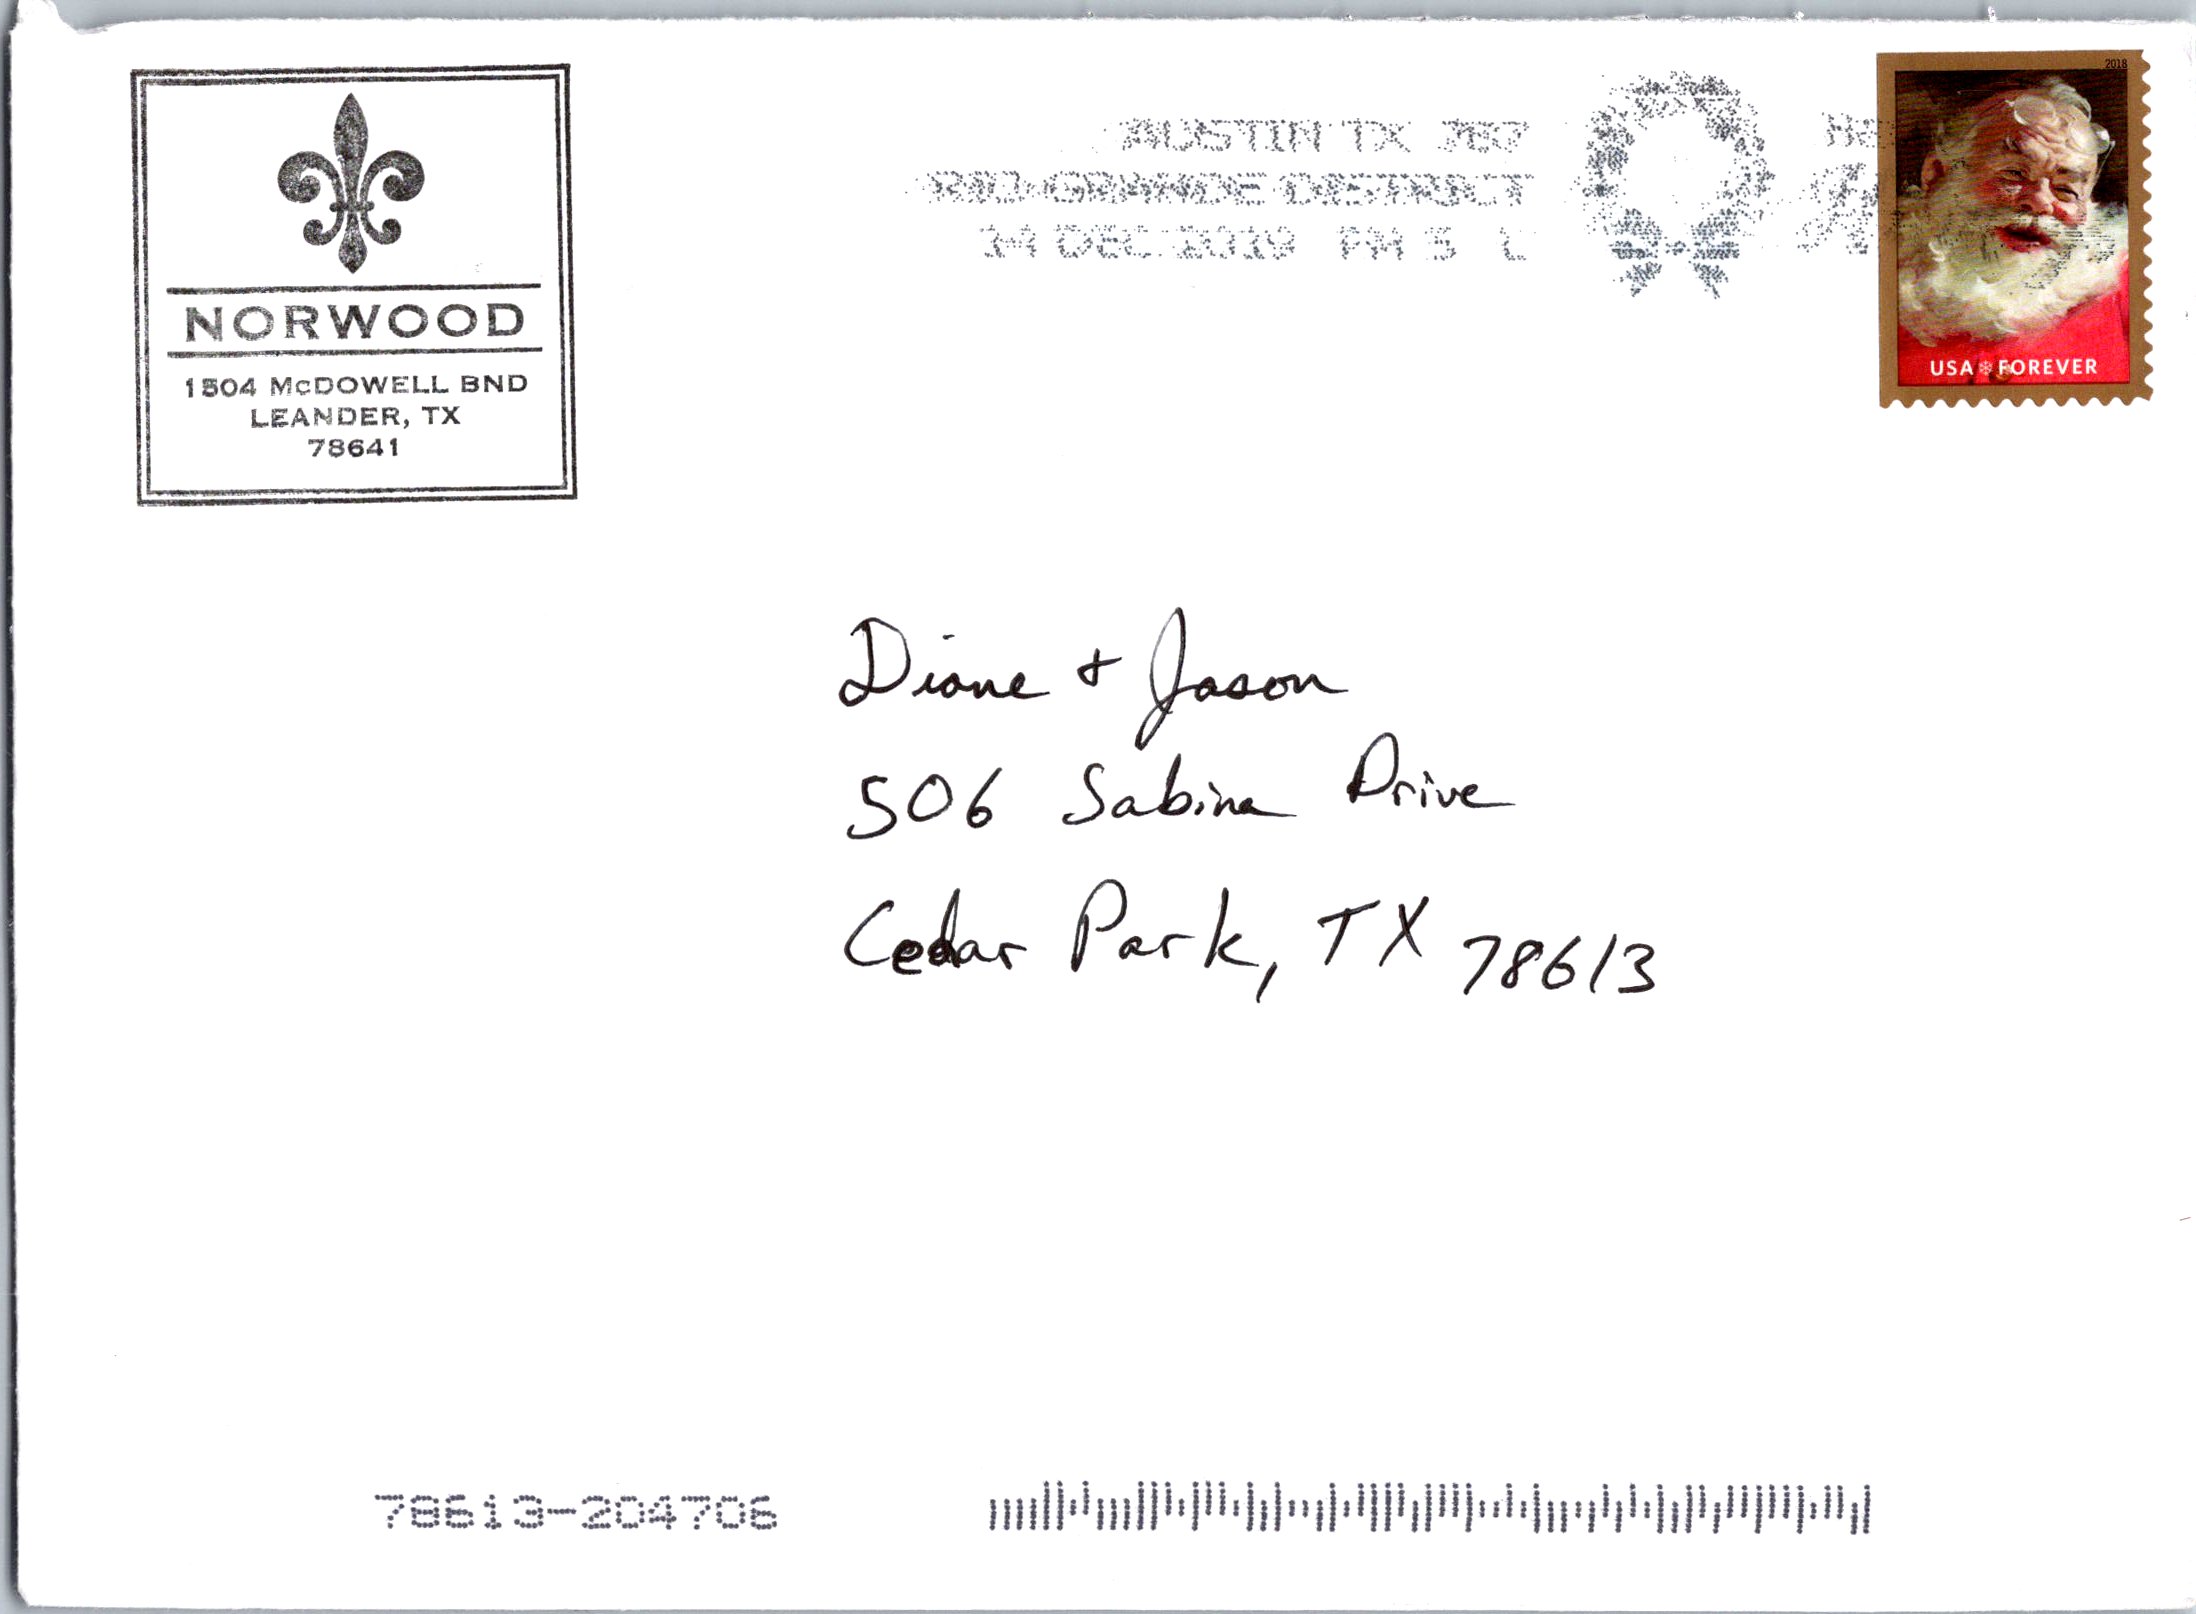 NORWOOD
1504 McDOWELL BND
LEANDER, TX
78641
AUSTIN TX 787
RIO GRANDE DISTRICT
14 DEC 2019 PM 5 L
2018
USA FOREVER
Diane + Jason
506 Sabine Drive
Cedar Park, TX 78613
78613-204706